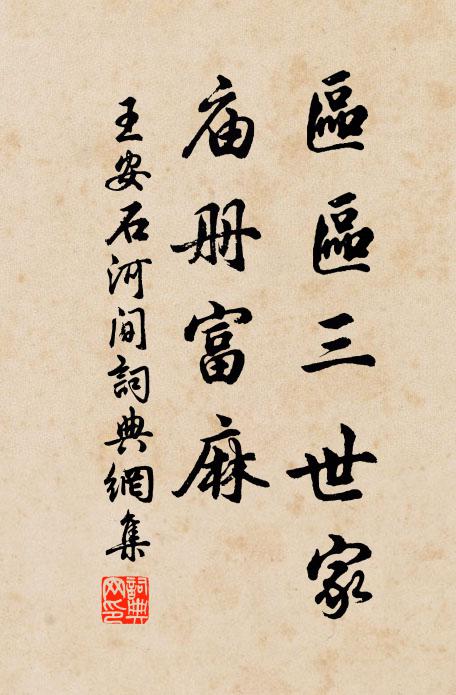 區區三世家
庙册富麻
王安石河间詞典網集
詞典網印